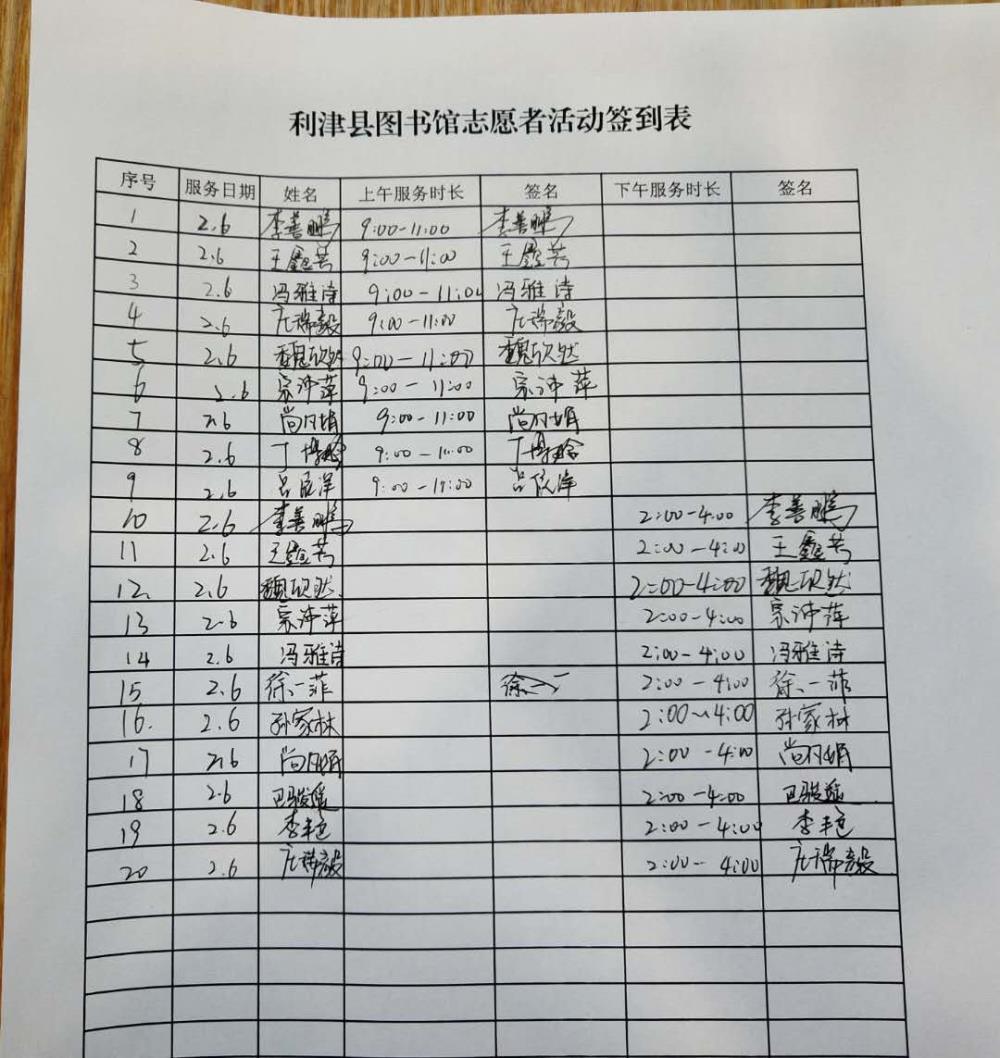 利津县图书馆志愿者活动签到表
序号 服务日期 姓名 上午服务时长 签名 下午服务时长 签名
1 2.6 李善鹏 9:00-11:00 李善鹏
2 2.6 王鑫芸 9:00-11:00 王鑫芸
3 2.6 冯雅诗 9:00-11:00 冯雅诗
4 2.6 9:00-11:00
5 2.6 魏欣然 9:00-11:00 魏欣然
6 2.6 宗沛萍 9:00-11:00 宗沛萍
7 2.6 尚月娟 9:00-11:00 尚月娟
8 2.6 9:00-11:00
9 2.6 9:00-11:00
10 2.6 李善鹏 2:00-4:00 李善鹏
11 2.6 王鑫芸 2:00-4:00 王鑫芸
12. 2.6 魏欣然 2:00-4:00 魏欣然
13 2.6 宗沛萍 2:00-4:00 宗沛萍
14 2.6 冯雅诗 2:00-4:00 冯雅诗
15 2.6 徐一菲 2:00-4:00 徐一菲
16. 2.6 孙家林 2:00~4:00 孙家林
17 2.6 尚月娟 2:00-4:00 尚月娟
18 2.6 2:00-4:00
19 2.6 李艳 2:00-4:00 李艳
20 2.6 2:00-4:00